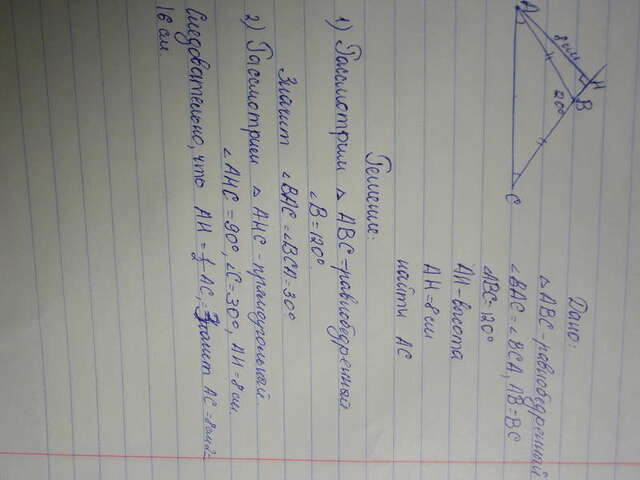 A
8см
H
B
120°
C
Дано:
△ABC-равнобедренный
∠BAC=∠BCA, AB=BC
∠ABC=120°
AH-высота
AH=8см
найти AC
Решение:
1) Рассмотрим △ABC-равнобедренный
∠B=120°.
Значит ∠BAC=∠BCA=30°
2) Рассмотрим △AHC-прямоугольный.
∠AHC=90°, ∠C=30°, AH=8см
Следовательно, что AH=½AC, Значит AC=8см·2
16 см.